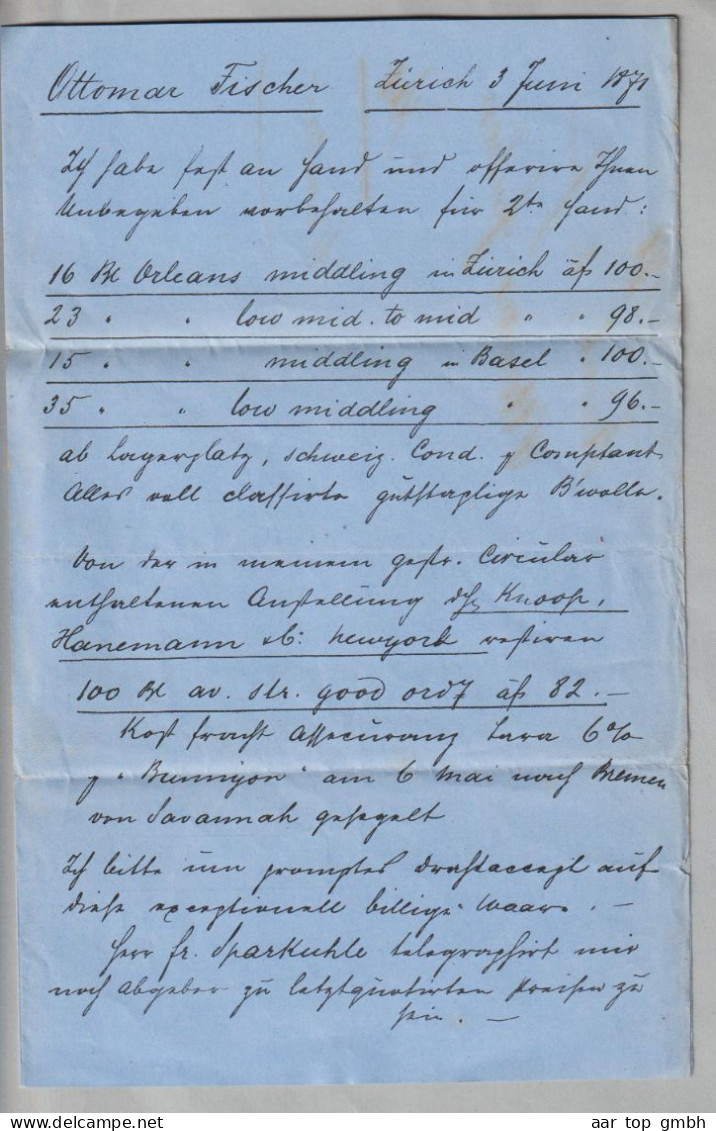 Ottomar Fischer Zürich 3 Juni 1871
Ich habe fest an Hand und offerire Ihnen
Unbegeben vorbehalten für 2te Hand:
16 Bl Orleans middling in Zürich à fs 100.-
23 " " low mid. to mid " " 98.-
15 " " middling in Basel " 100.-
35 " " low middling " " 96.-
ab Lagerplatz, schweiz. Cond. p Comptant
Alles voll classirte gutstaplige B'wolle.
Von der in meinem gestr. Circular
enthaltenen Anstellung Knoop,
Hanemann & C: Newyork restiren
100 Bl av. str. good ord à fs 82.-
Kost fracht Assecuranz tara 6%
p " " am 6 Mai nach Bremen
von Savannah gesegelt
Ich bitte um promptes Drahtaccept auf
diese exceptionell billige Waare. -
Herr fr. Sparkuhle telegraphirt mir
noch Abgeber zu letztquotirten Preisen zu
sein. -
aar top gmbh